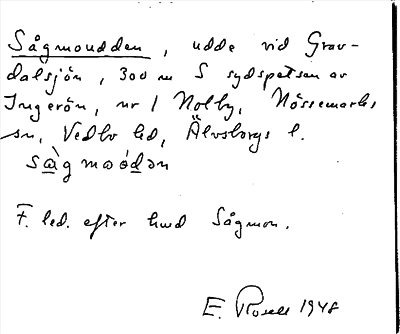 Sågmoudden, udde vid Grav-
dalsjön, 300 m S sydspetsen av
Ingerön, nr 1 Nolby, Nössemarks
sn, Vedbo hd, Älvsborgs l.
så̱̀g mωó́ḏən
F. led. efter hmd Sågmon.
E. Rosell 1948